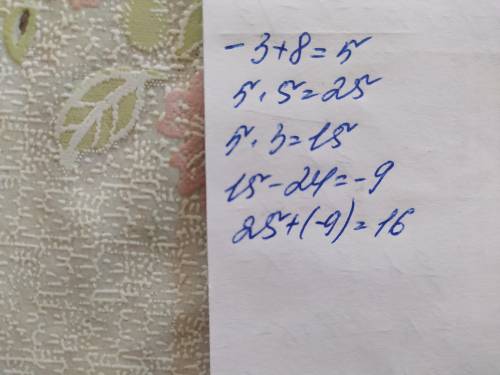 -3+8=5
5·5=25
5·3=15
15-24=-9
25+(-9)=16